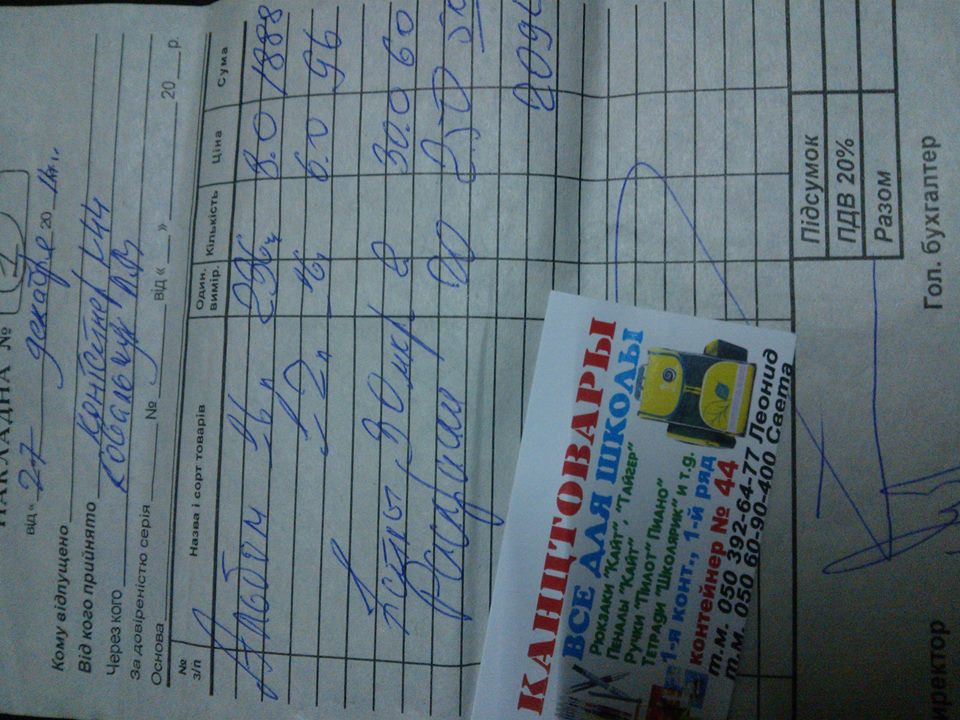 НАКЛАДНА №
від « 27 » декабря 20 14 г.
Кому відпущено
Від кого прийнято контейнер 44
Через кого Ковальчук
За довіреністю серія № від « » 20 р.
Основа
№ з/п Назва і сорт товарів Один. вимір. Кількість Ціна Сума
Альбом 8.0 1888
12л 16 6.0 96
30 мкр 2 30.0 60
20 2,50 50
2094
КАНЦТОВАРЫ
ВСЕ ДЛЯ ШКОЛЫ
Рюкзаки "Кайт"
Пеналы "Кайт", "Тайгер"
Ручки "Пилот" Пиано"
Тетради "Школярик" и т.д.
1-я конт., 1-й ряд
контейнер № 44
т.м. 050 392-64-77 Леонид
т.м. 050 60-90-400 Света
Підсумок
ПДВ 20%
Разом
иректор
Гол. бухгалтер